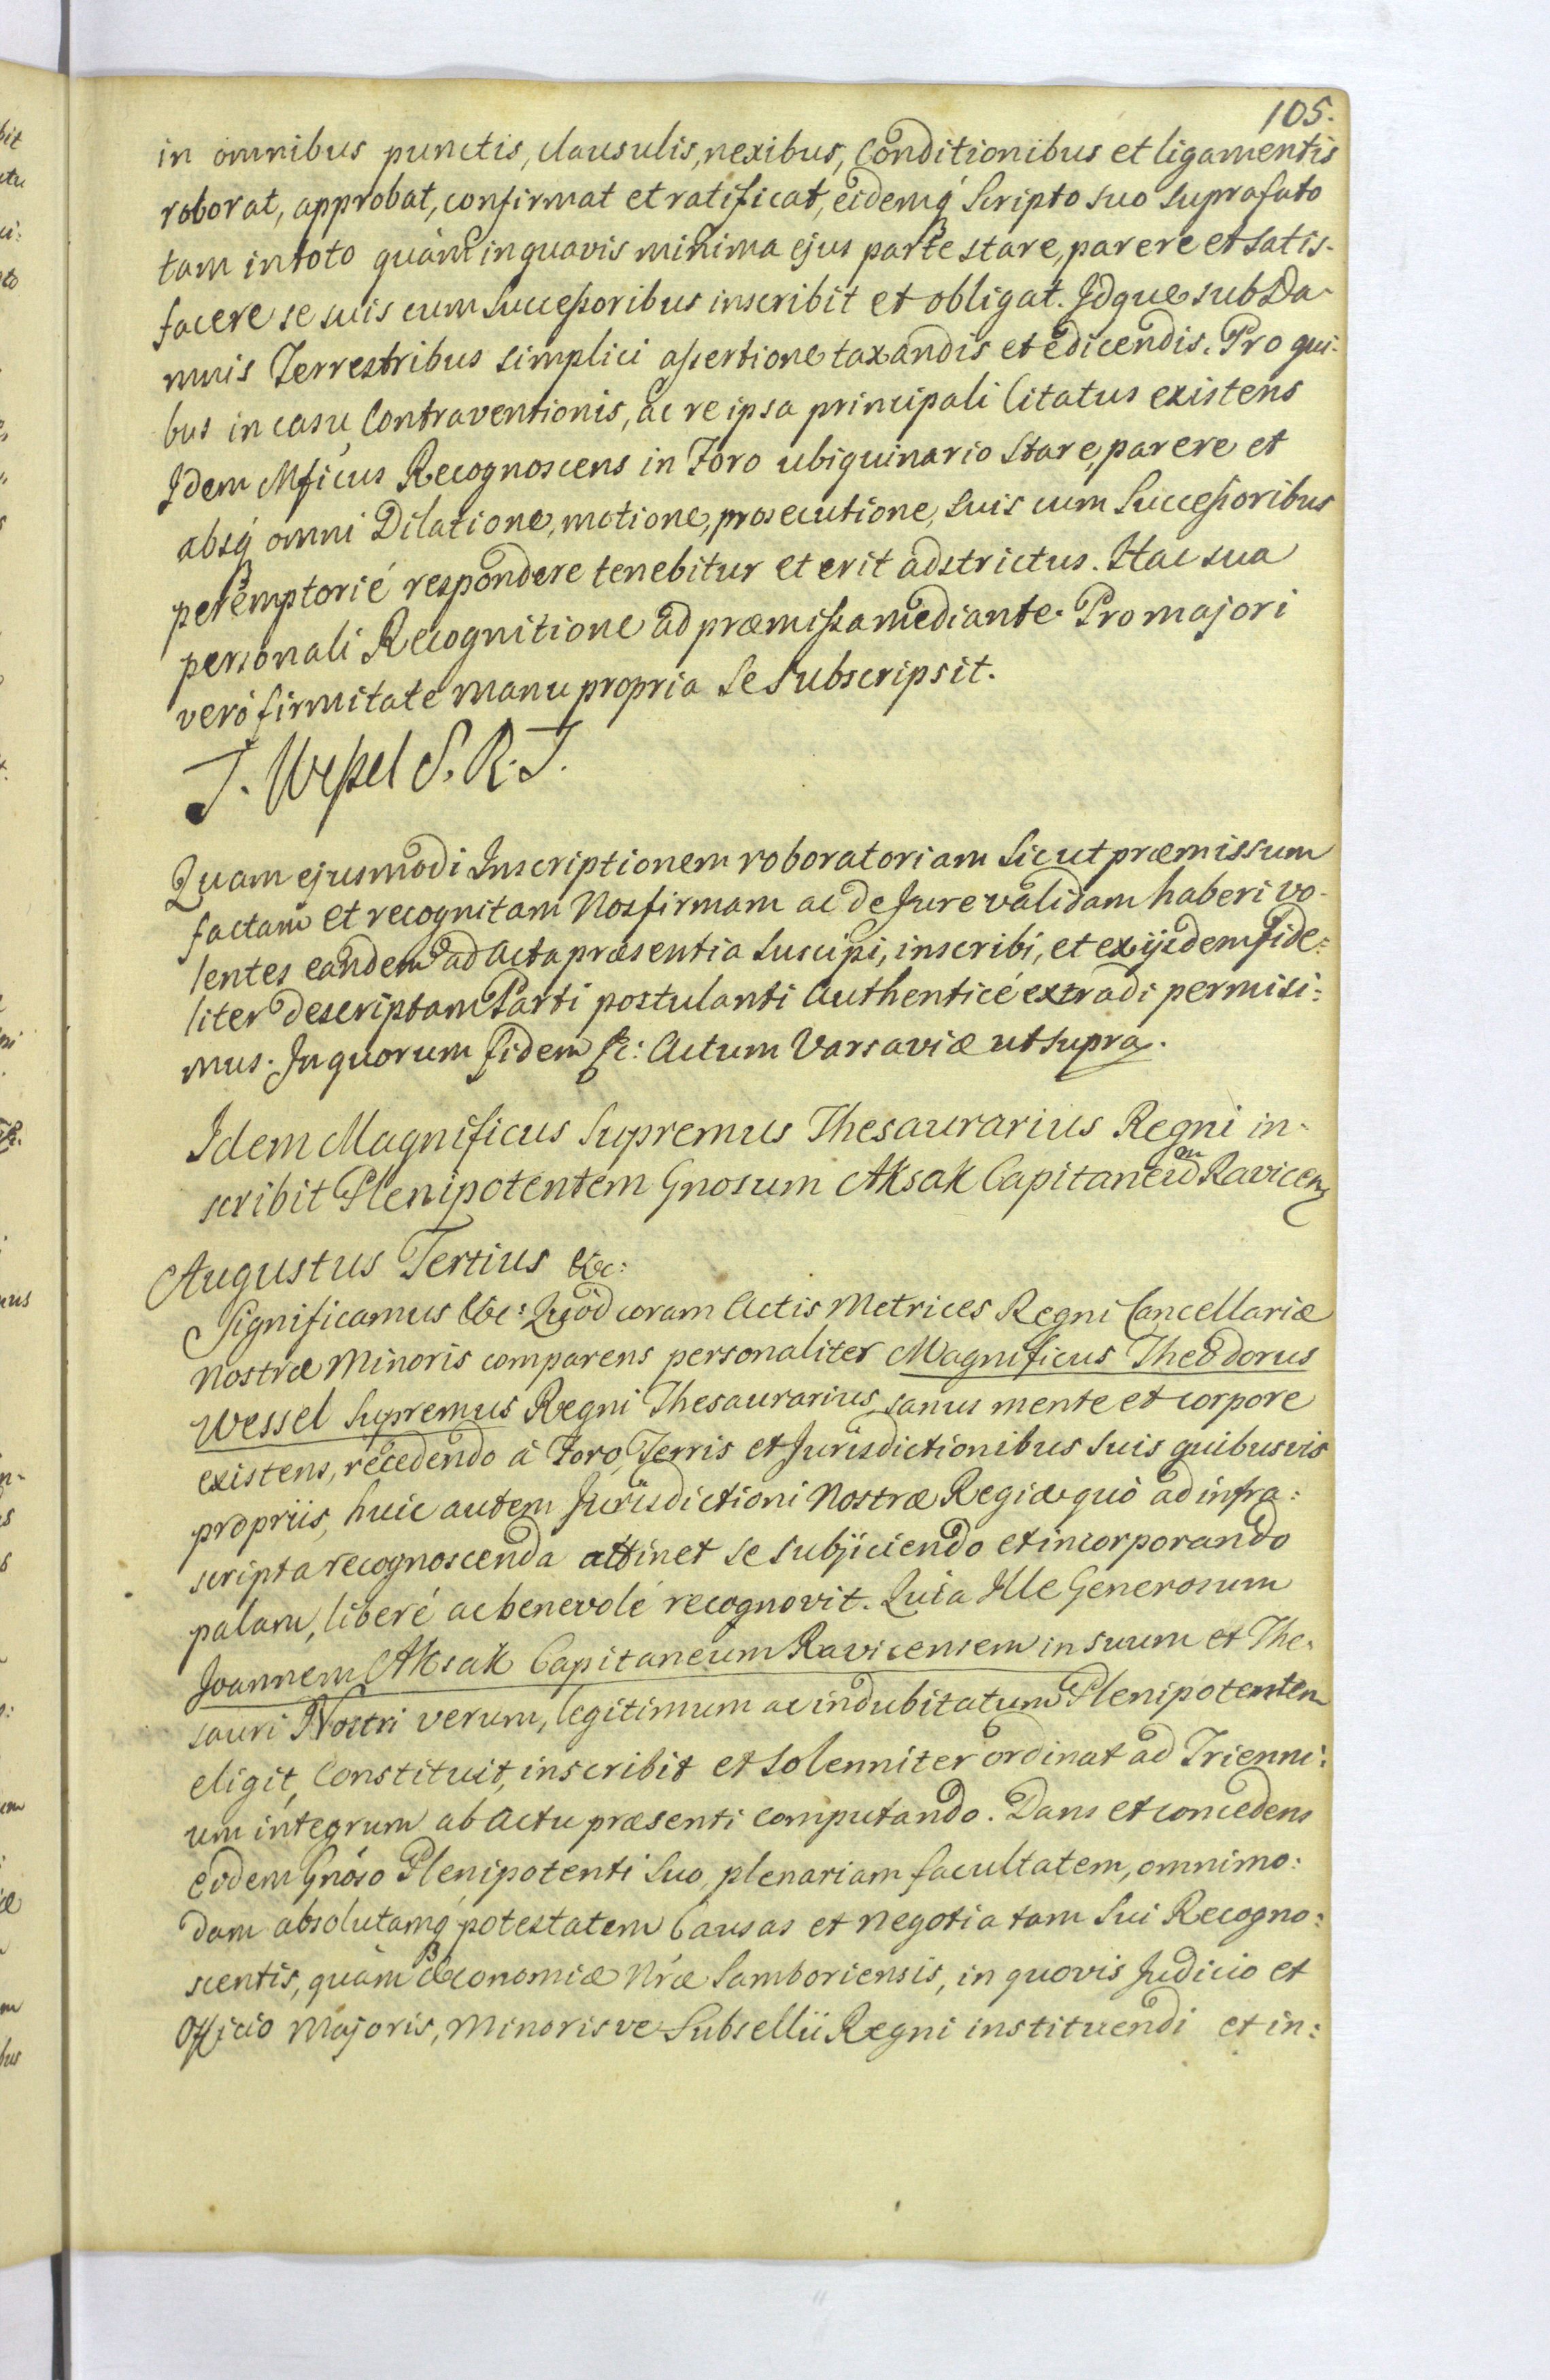 105.
in omnibus punctis, clausulis, nexibus, Conditionibus et ligamentis
roborat, approbat, confirmat et ratificat, eidemq́ Scripto suo suprafato
tam in toto quàm in quavis minima ejus parte stare, parere et satis-
facere se suis cum Successoribus inscribit et obligat. Idque sub Da-
mnis Terrestribus simplici assertione taxandis et edicendis. Pro qui-
bus in casu Contraventionis, ac re ipsa principali Citatus existens
Idem Mficus Recognoscens in Foro ubiquinario stare, parere et
absq́ omni Dilatione, motione, prosecutione, suis cum Successoribus
peremptorié respondere tenebitur et erit adstrictus. Hac sua
personali Recognitione ad præmissa mediante. Pro majori
veró firmitate manu propria se subscripsit.
T. Wessel S. R. T.
Quam ejusmodi Inscriptionem roboratoriam sicut præmissum
factam et recognitam Nos firmam ac de Jure validam haberi vo-
lentes eandem ad Acta præsentia suscipi, inscribi, et ex ijsdem fide:
liter descriptam Parti postulanti Authenticé extradi permisi:
mus. In quorum fidem &c: Actum Varsaviæ ut supra.
Idem Magnificus Supremus Thesaurarius Regni in-
scribit Plenipotentem Gnosum Aksak Capitaneum Ravicen
Augustus Tertius &c:
Significamus &c: Quod coram Actis Metrices Regni Cancellariæ
Nostræ Minoris comparens personaliter Magnificus Theodorus
Wessel Supremus Regni Thesaurarius, sanus mente et corpore
existens, recedendo à Foro, Terris et Jurisdictionibus suis quibusvis
propriis, huic autem Jurisdictioni Nostræ Regiæ quò ad infra:
scripta recognoscenda attinet se subjiciendo et incorporando
palam, liberé ac benevolé recognovit. Quia Ille Generosum
Joannem Aksak Capitaneum Ravicensem in suum et The-
sauri Nostri verum, legitimum ac indubitatum Plenipotentem
eligit, Constituit, inscribit et solenniter ordinat ad Trienni:
um integrum ab Actu præsenti computando. Dans et concedens
eidem Gnoso Plenipotenti suo, plenariam facultatem, omnimo:
dam absolutamq́ potestatem Causas et negotia tam sui Recogno:
scentis, quàm Œconomiæ Nræ Samboriensis, in quovis Judicio et
Officio Majoris, Minorisve Subsellii Regni instituendi et in: